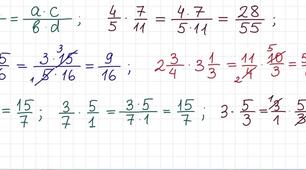 = a·c / b·d ; 4/5 · 7/11 = 4·7 / 5·11 = 28/55 ;
3·15 / 5·16 = 9/16 ; 2 3/4 · 3 1/3 = 11/4 · 10/3 =
= 15/7 ; 3/7 · 5/1 = 3·5 / 7·1 = 15/7 ; 3 · 5/3 = 3/1 ·